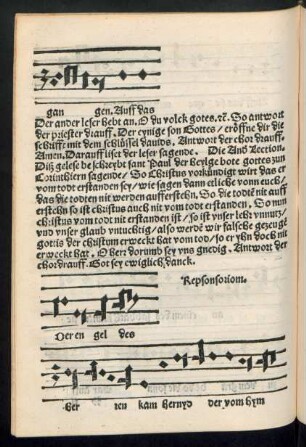 gan gen. Auff das
Der ander leser hebt an. O du volck gotes. ꝛc. So antwort
der priester drauff. Der eynige son Gottes / eröffne dir die
schrifft mit dem schlüssel dauids. Antwort der chor drauff.
Amen. Darauff liset der leser sagende. Die And Lection.
Diß gelese beschreybt sant Paul der heylge bote gottes zun
Corinthiern sagende / So Christus vorkündigt wirt das er
vom todt erstanden sey / wie sagen dann etliche vonn euch /
das die todten nit werden aufferstehn. So die todte nit auff
erstehn so ist christus auch nit vom todt erstanden. So nun
christus vom todt nit erstanden ist / so ist vnser lehr vnnutz /
vnd vnser glaub vntuchtig / also werdē wir falsche gezeugē
gottis der christum erweckt hat vom tod / so er yhn doch nit
erweckt hat. O herr dorumb sey vns gnedig. Antwort der
chordrauff. Got sey ewiglich danck.
Repsonsoriom.
Der en gel des
her ren kam hernyd der vom hym